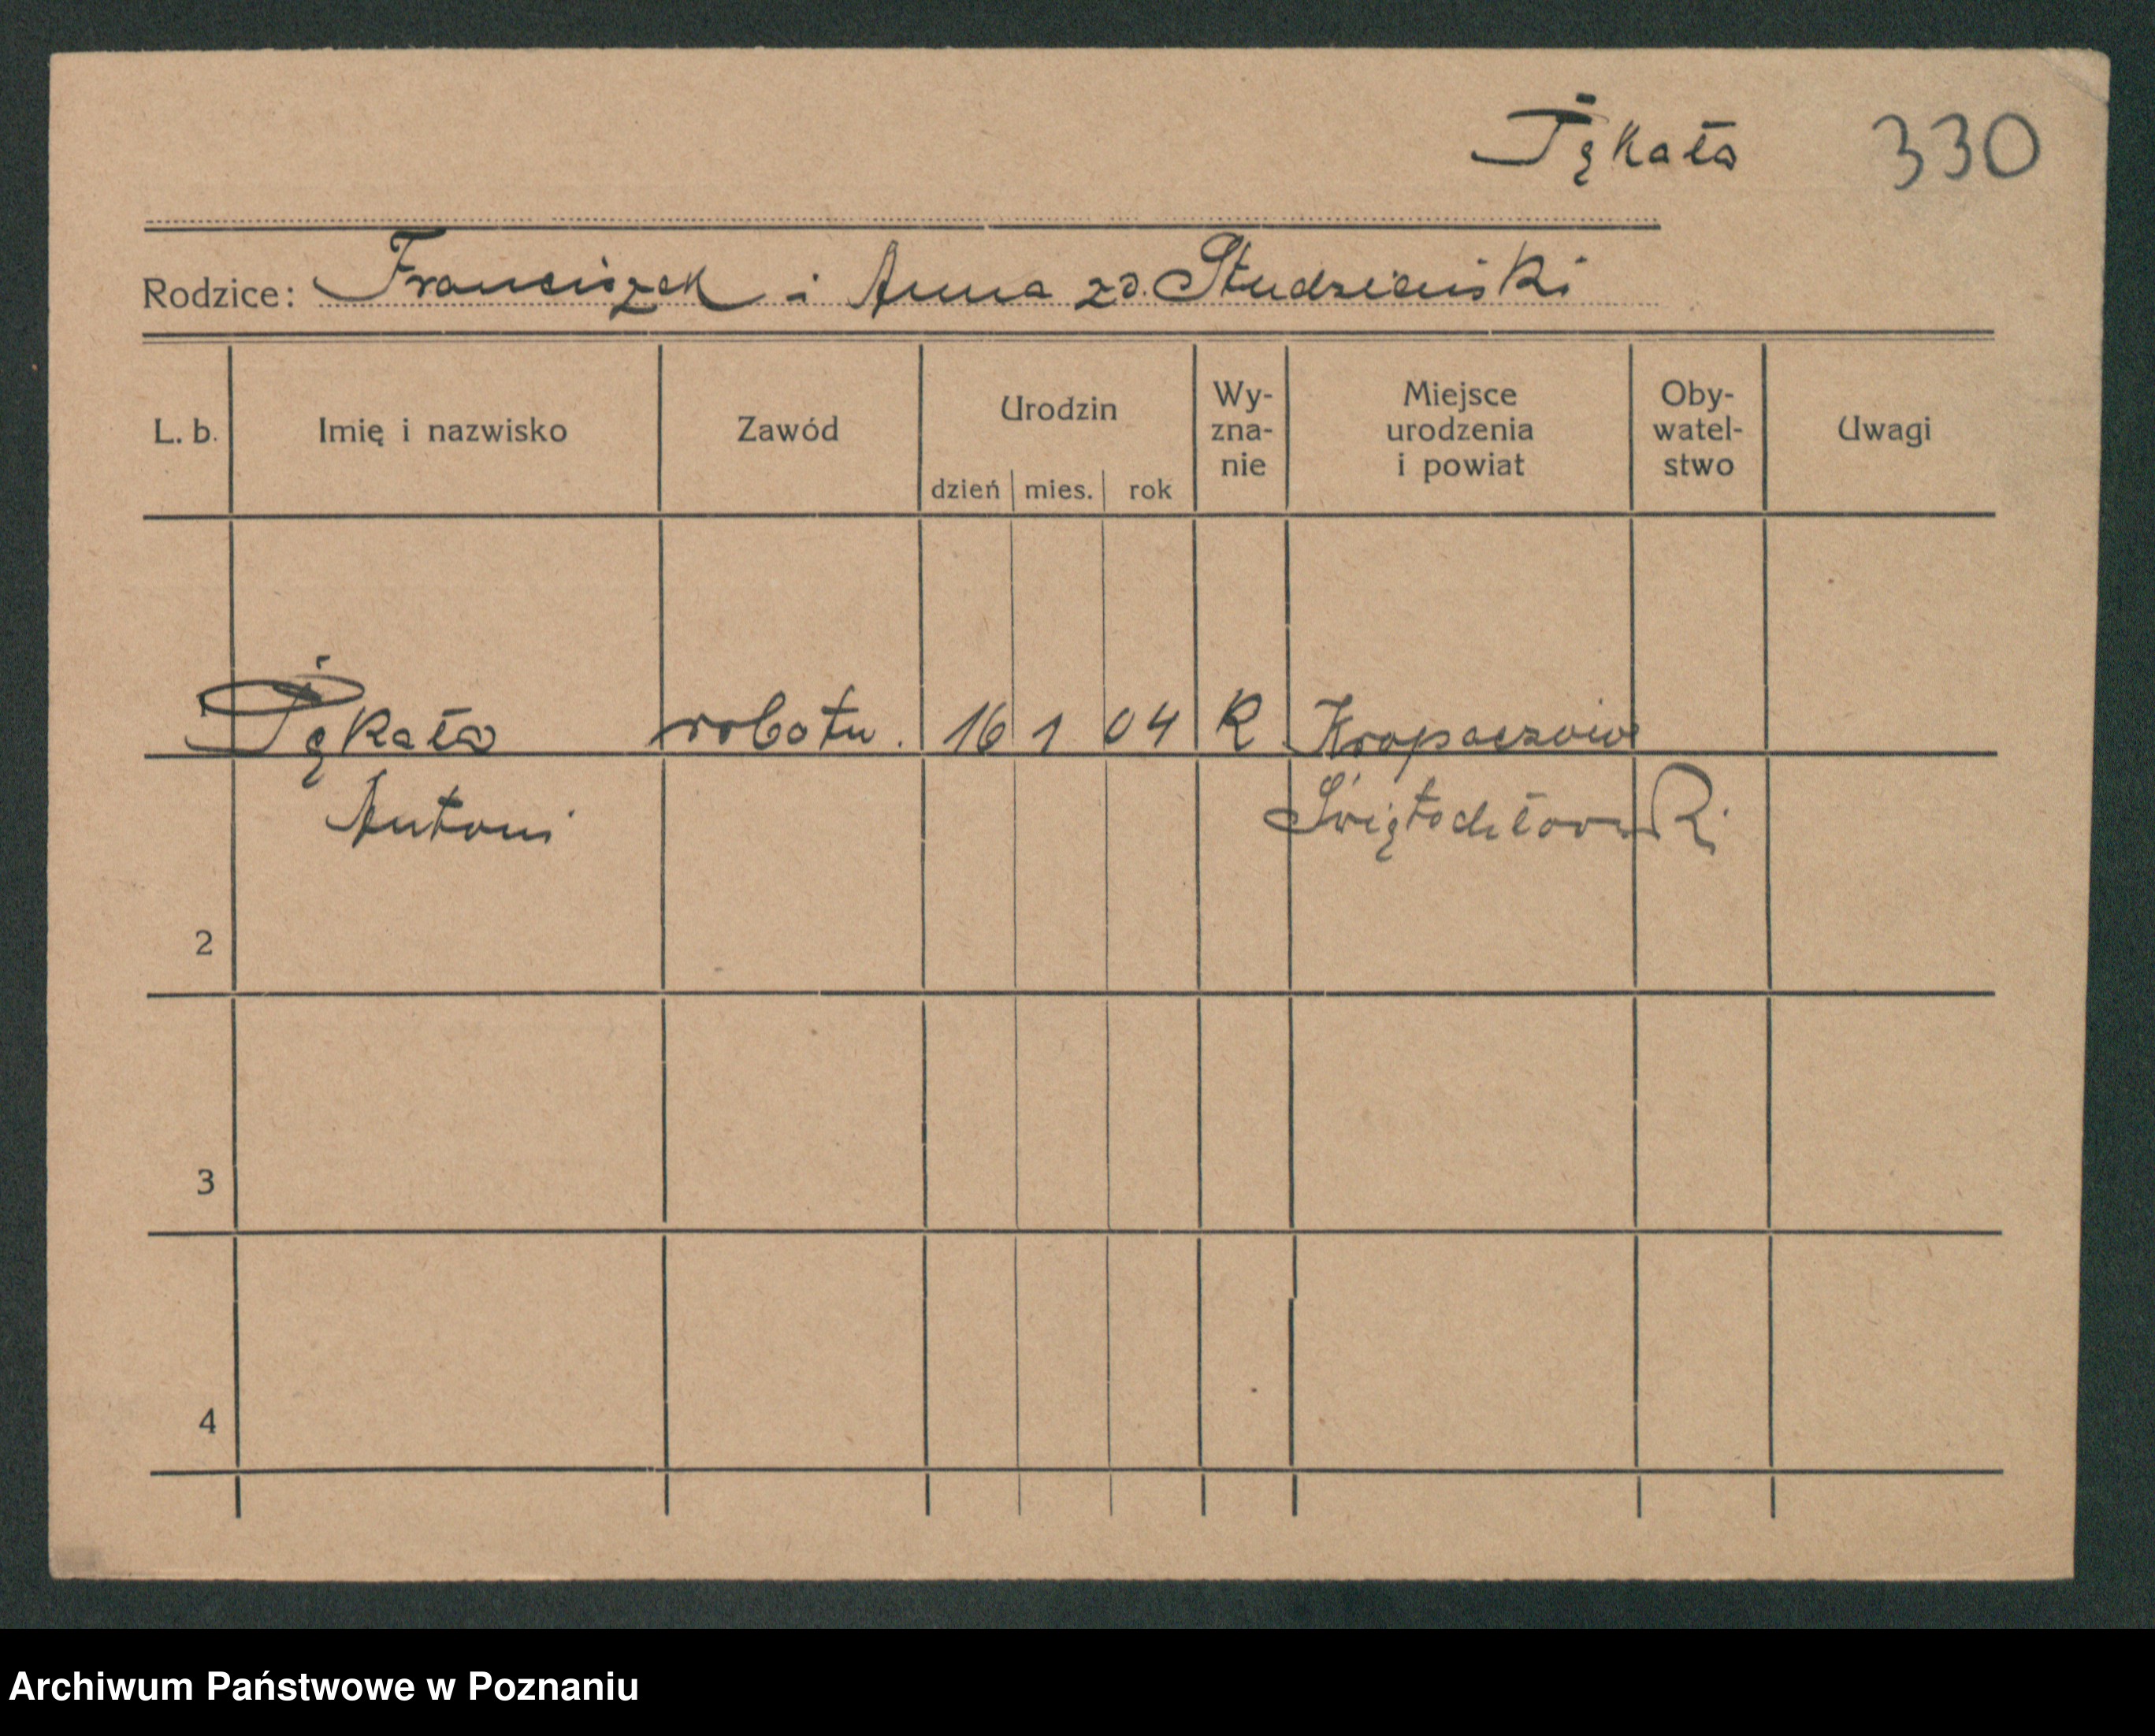 Jękała 330
Rodzice: Franciszek i Anna zd. Studzieński
L. b. Imię i nazwisko Zawód Urodzin dzień mies. rok Wy-zna-nie Miejsce urodzenia i powiat Oby-watel-stwo Uwagi
robotn. 16 1 04 R
Antoni Świętochłowki
2
3
4
Archiwum Państwowe w Poznaniu